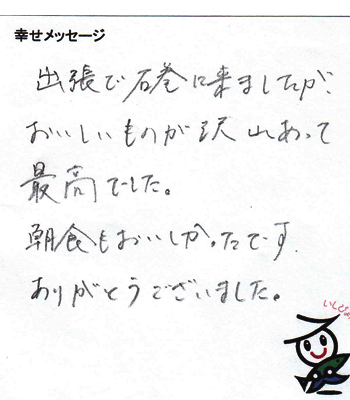 幸せメッセージ
出張で石巻に来ましたが、
おいしいものが沢山あって
最高でした。
朝食もおいしかったです.
ありがとうございました。